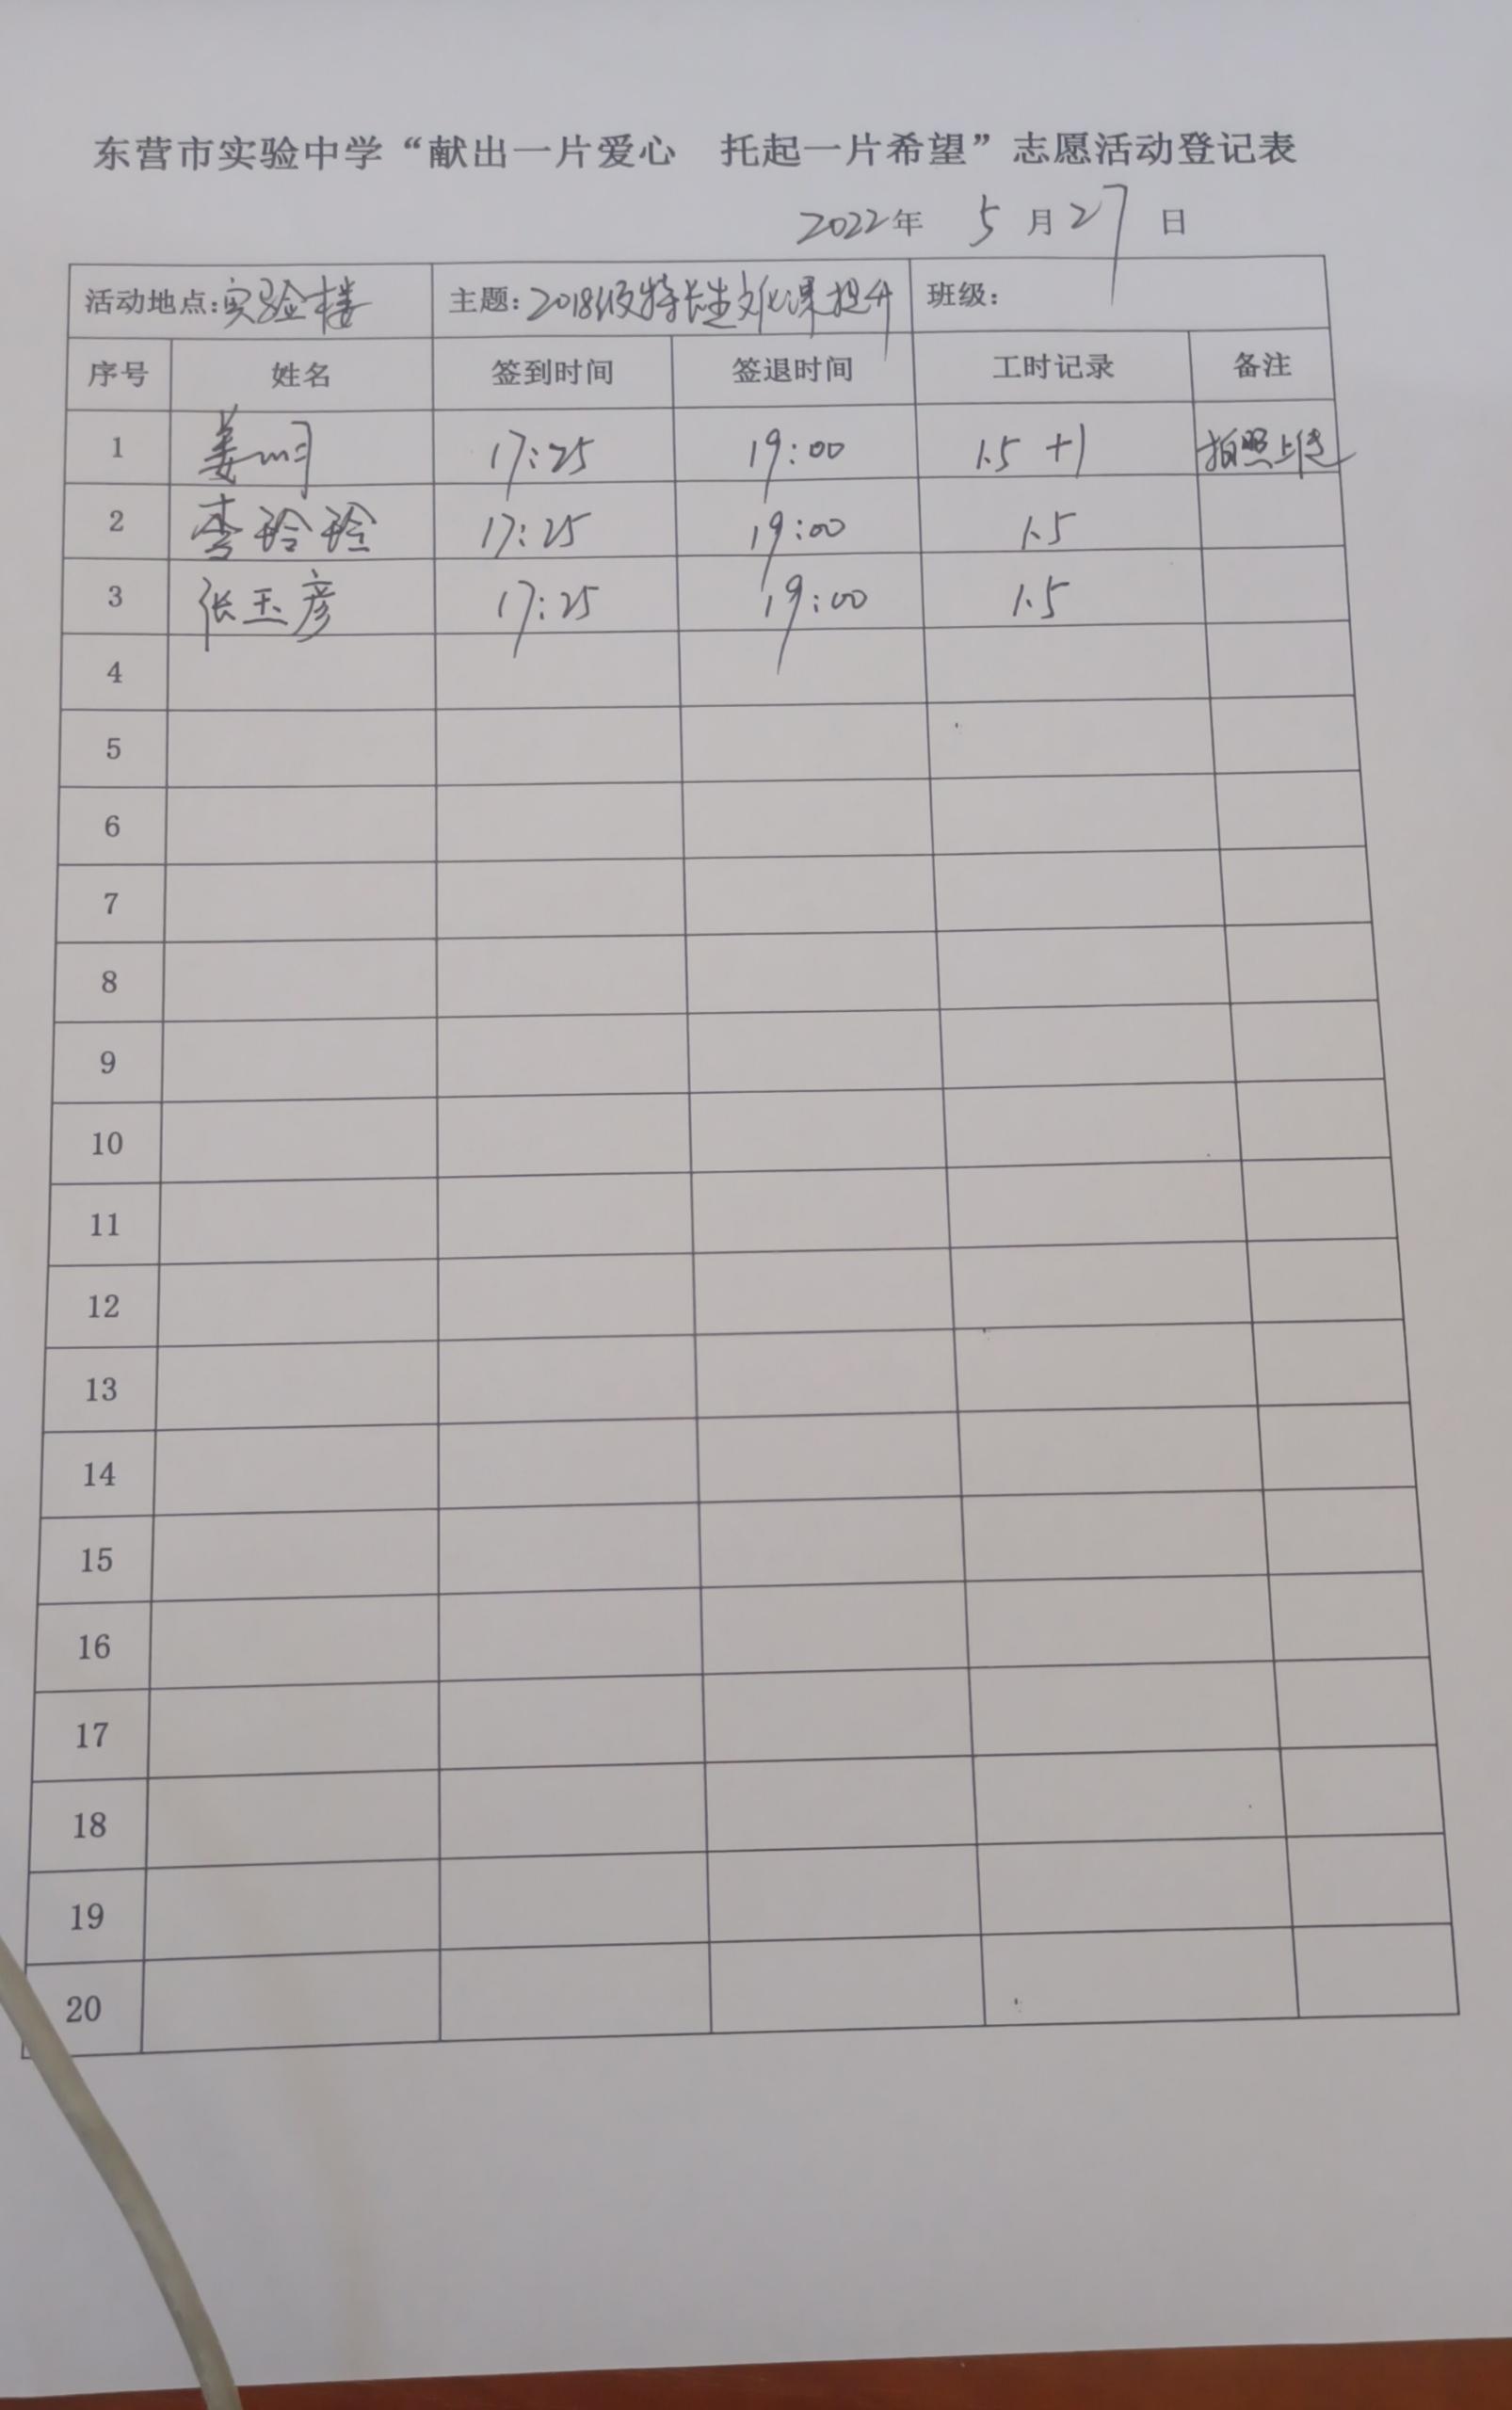 东营市实验中学“献出一片爱心 托起一片希望”志愿活动登记表
2022年 5 月 27 日
活动地点：实验楼 主题：2018级特长生文化课提升 班级：
序号 姓名 签到时间 签退时间 工时记录 备注
1 姜 17:25 19:00 1.5 +1 拍照上传
2 李玲玲 17:25 19:00 1.5
3 张玉彦 17:25 19:00 1.5
4
5
6
7
8
9
10
11
12
13
14
15
16
17
18
19
20